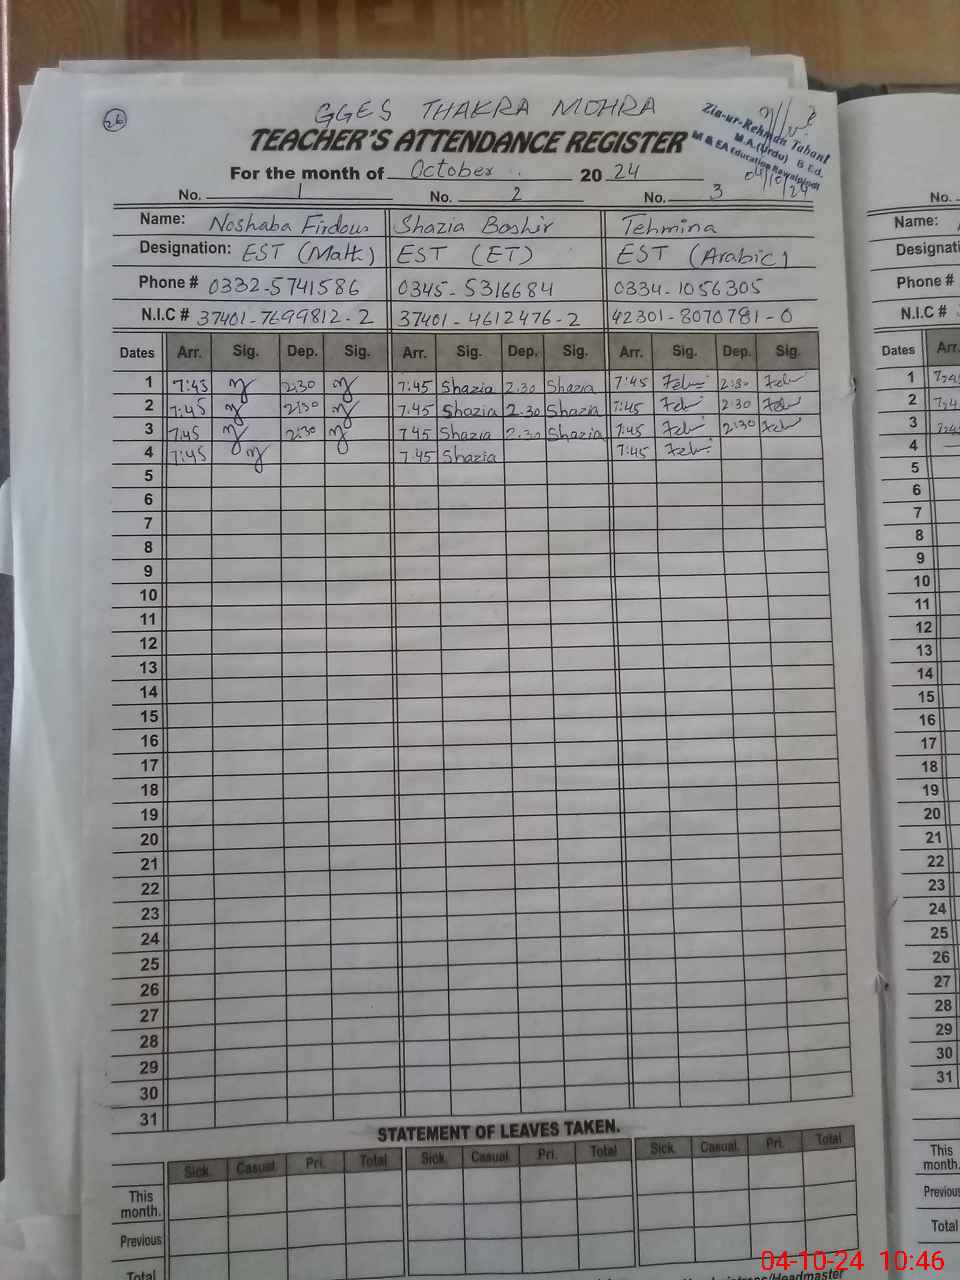 26
GGES THAKRA MOHRA
TEACHER'S ATTENDANCE REGISTER
Zia-ur-Rehman Tabani
M.A.(Urdu) B.Ed.
M & EA Education Rawalpindi
04/10/24
For the month of October 20 24
No. 1 No. 2 No. 3
Name: Noshaba Firdous Shazia Bashir Tehmina
Designation: EST (Math) EST (ET) EST (Arabic)
Phone # 0332-5741586 0345-5316684 0334-1056305
N.I.C # 37401-7699812-2 37401-4612476-2 42301-8070781-0
Dates Arr. Sig. Dep. Sig. Arr. Sig. Dep. Sig. Arr. Sig. Dep. Sig.
1 7:45 2:30 7:45 Shazia 2:30 Shazia 7:45 2:30
2 7:45 2:30 7.45 Shazia 2.30 Shazia 7:45 2:30
3 7:45 2:30 7 45 Shazia 2.30 Shazia 7:45 2:30
4 7:45 7.45 Shazia 7:45
5
6
7
8
9
10
11
12
13
14
15
16
17
18
19
20
21
22
23
24
25
26
27
28
29
30
31
STATEMENT OF LEAVES TAKEN.
Sick. Casual. Pri. Total Sick. Casual. Pri. Total Sick. Casual. Pri. Total
This month.
Previous
Total
/Headmaster
No.
Name:
Designati
Phone #
N.I.C #
Dates Arr.
1
2
3
4
5
6
7
8
9
10
11
12
13
14
15
16
17
18
19
20
21
22
23
24
25
26
27
28
29
30
31
This
month.
Previous
Total
04-10-24 10:46